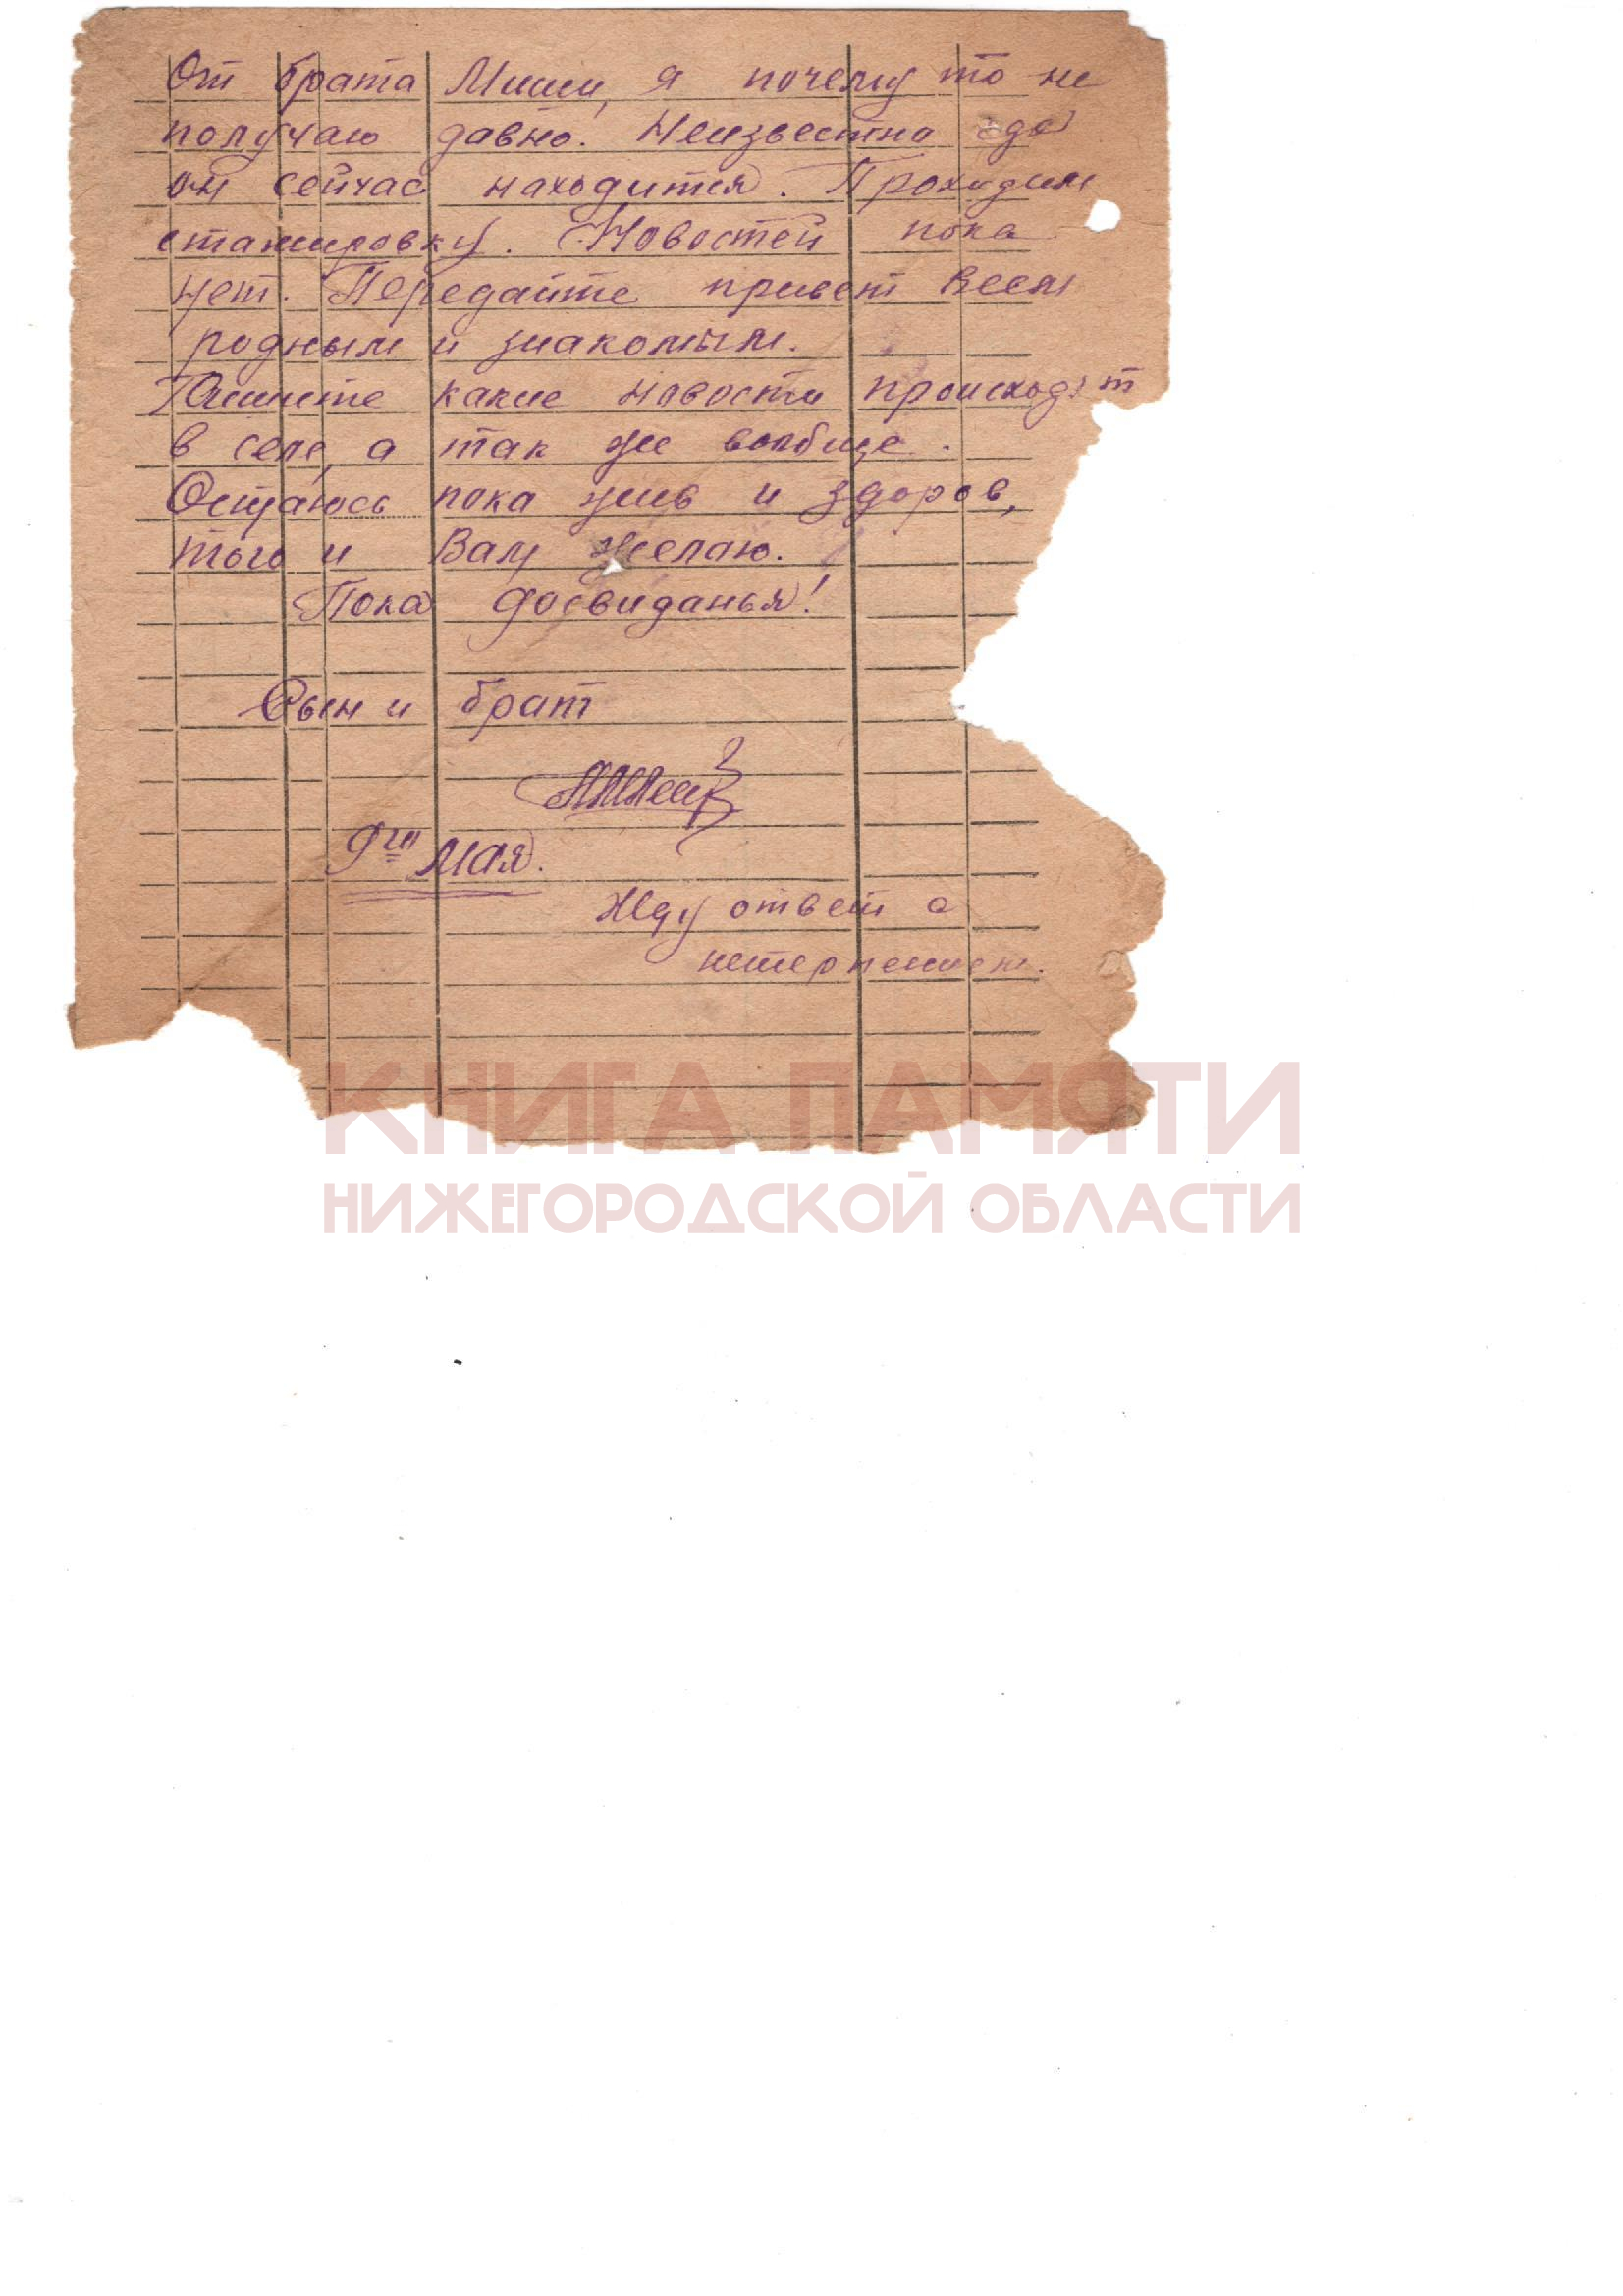 От брата Миши, я почему то не
получаю давно. Неизвестно где
он сейчас находится. Проходим
стажировку. Новостей пока
нет. Передайте привет всем
родным и знакомым.
Пишите какие новости происходят
в селе, а так же вообще.
Остаюсь пока жив и здоров,
того и Вам желаю.
Пока досвиданья!
Сын и брат
9го мая.
Жду ответ с
нетерпением.
КНИГА ПАМЯТИ
НИЖЕГОРОДСКОЙ ОБЛАСТИ